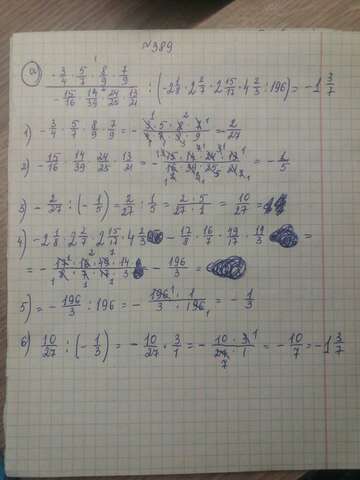 №389
а) (-3/4 · 5/7 · 8/9 · 7/9)/(-15/16 · 14/39 · 24/25 · 13/21) : (-2 1/8 · 2 2/7 · 2 15/17 · 4 2/3 : 196) = -1 3/7
1) -3/4 · 5/7 · 8/9 · 7/9 = -(3 · 5 · 8 · 7)/(4 · 7 · 9 · 9) = 2/27
2) -15/16 · 14/39 · 24/25 · 13/21 = -(15 · 14 · 24 · 13)/(16 · 39 · 25 · 21) = -1/5
3) -2/27 : (-1/5) = 2/27 : 1/5 = (2 · 5)/(27 · 1) = 10/27 =
4) -2 1/8 · 2 2/7 · 2 15/17 · 4 2/3 = -17/8 · 16/7 · 49/17 · 14/3 =
= -(17 · 16 · 49 · 14)/(8 · 7 · 17 · 3) = -196/3
5) = -196/3 : 196 = -(196 · 1)/(3 · 196) = -1/3
6) 10/27 : (-1/3) = -10/27 · 3/1 = -(10 · 3)/(27 · 1) = -10/7 = -1 3/7